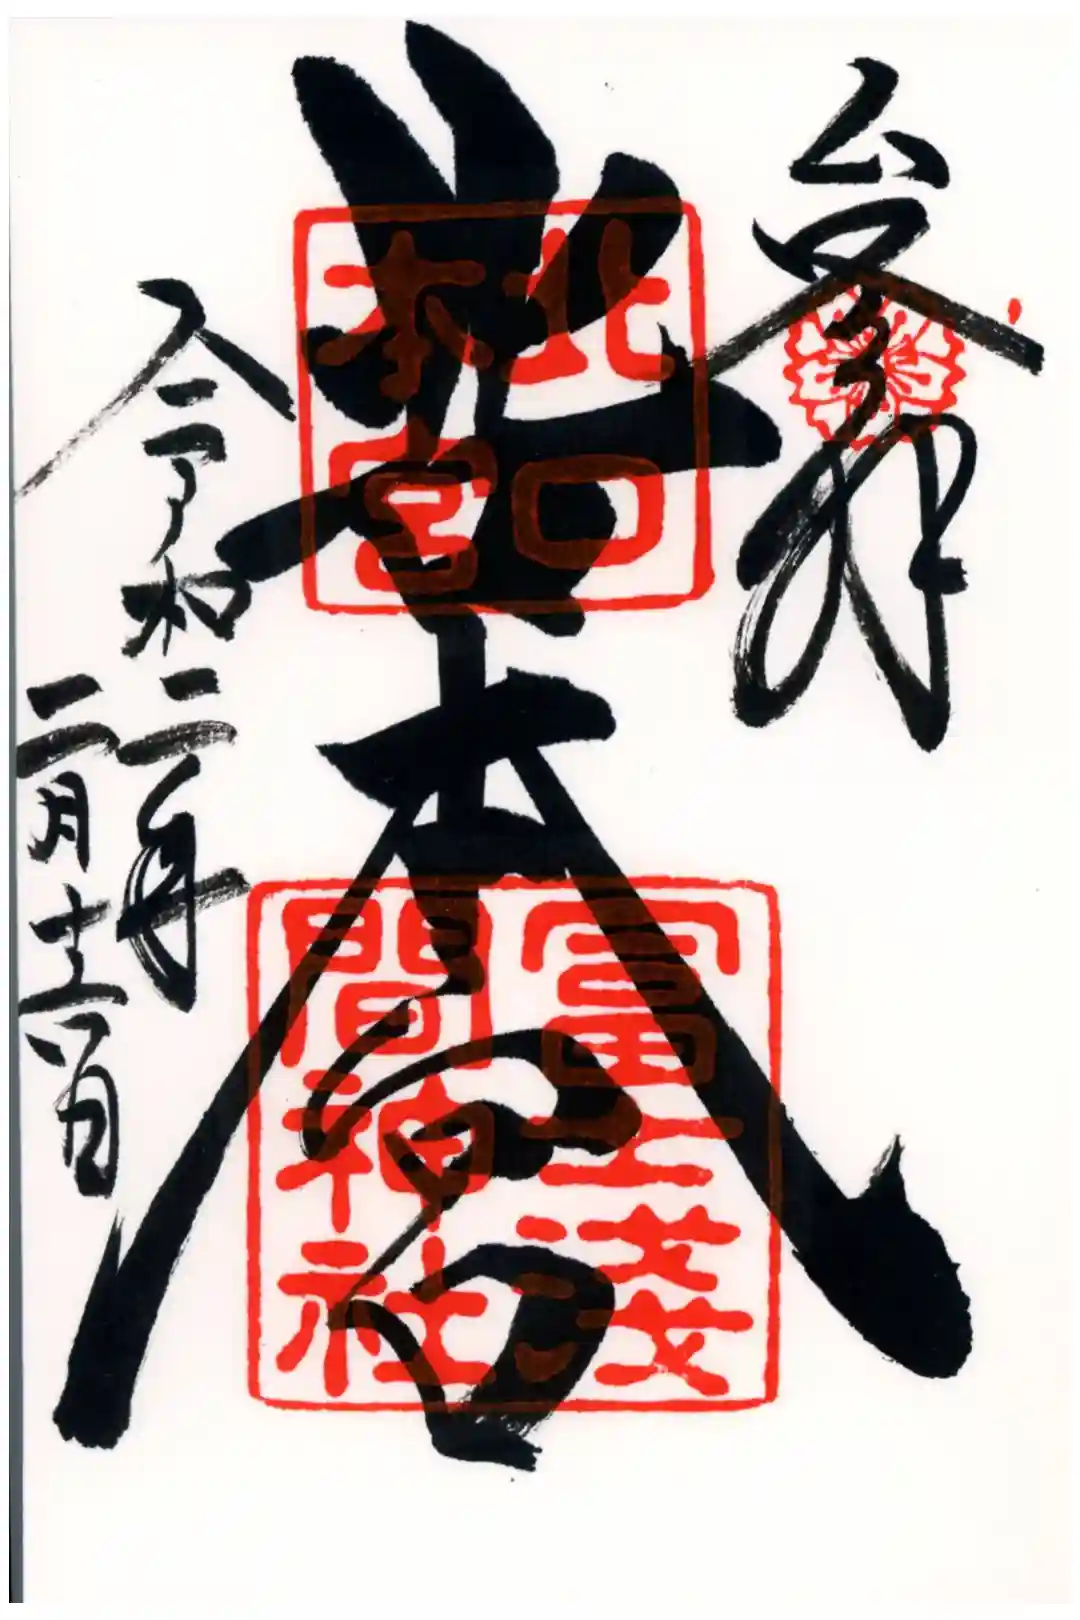 参拝
北口本宮
北口
本宮
冨士淺
間神社
令和二年
二月十六日